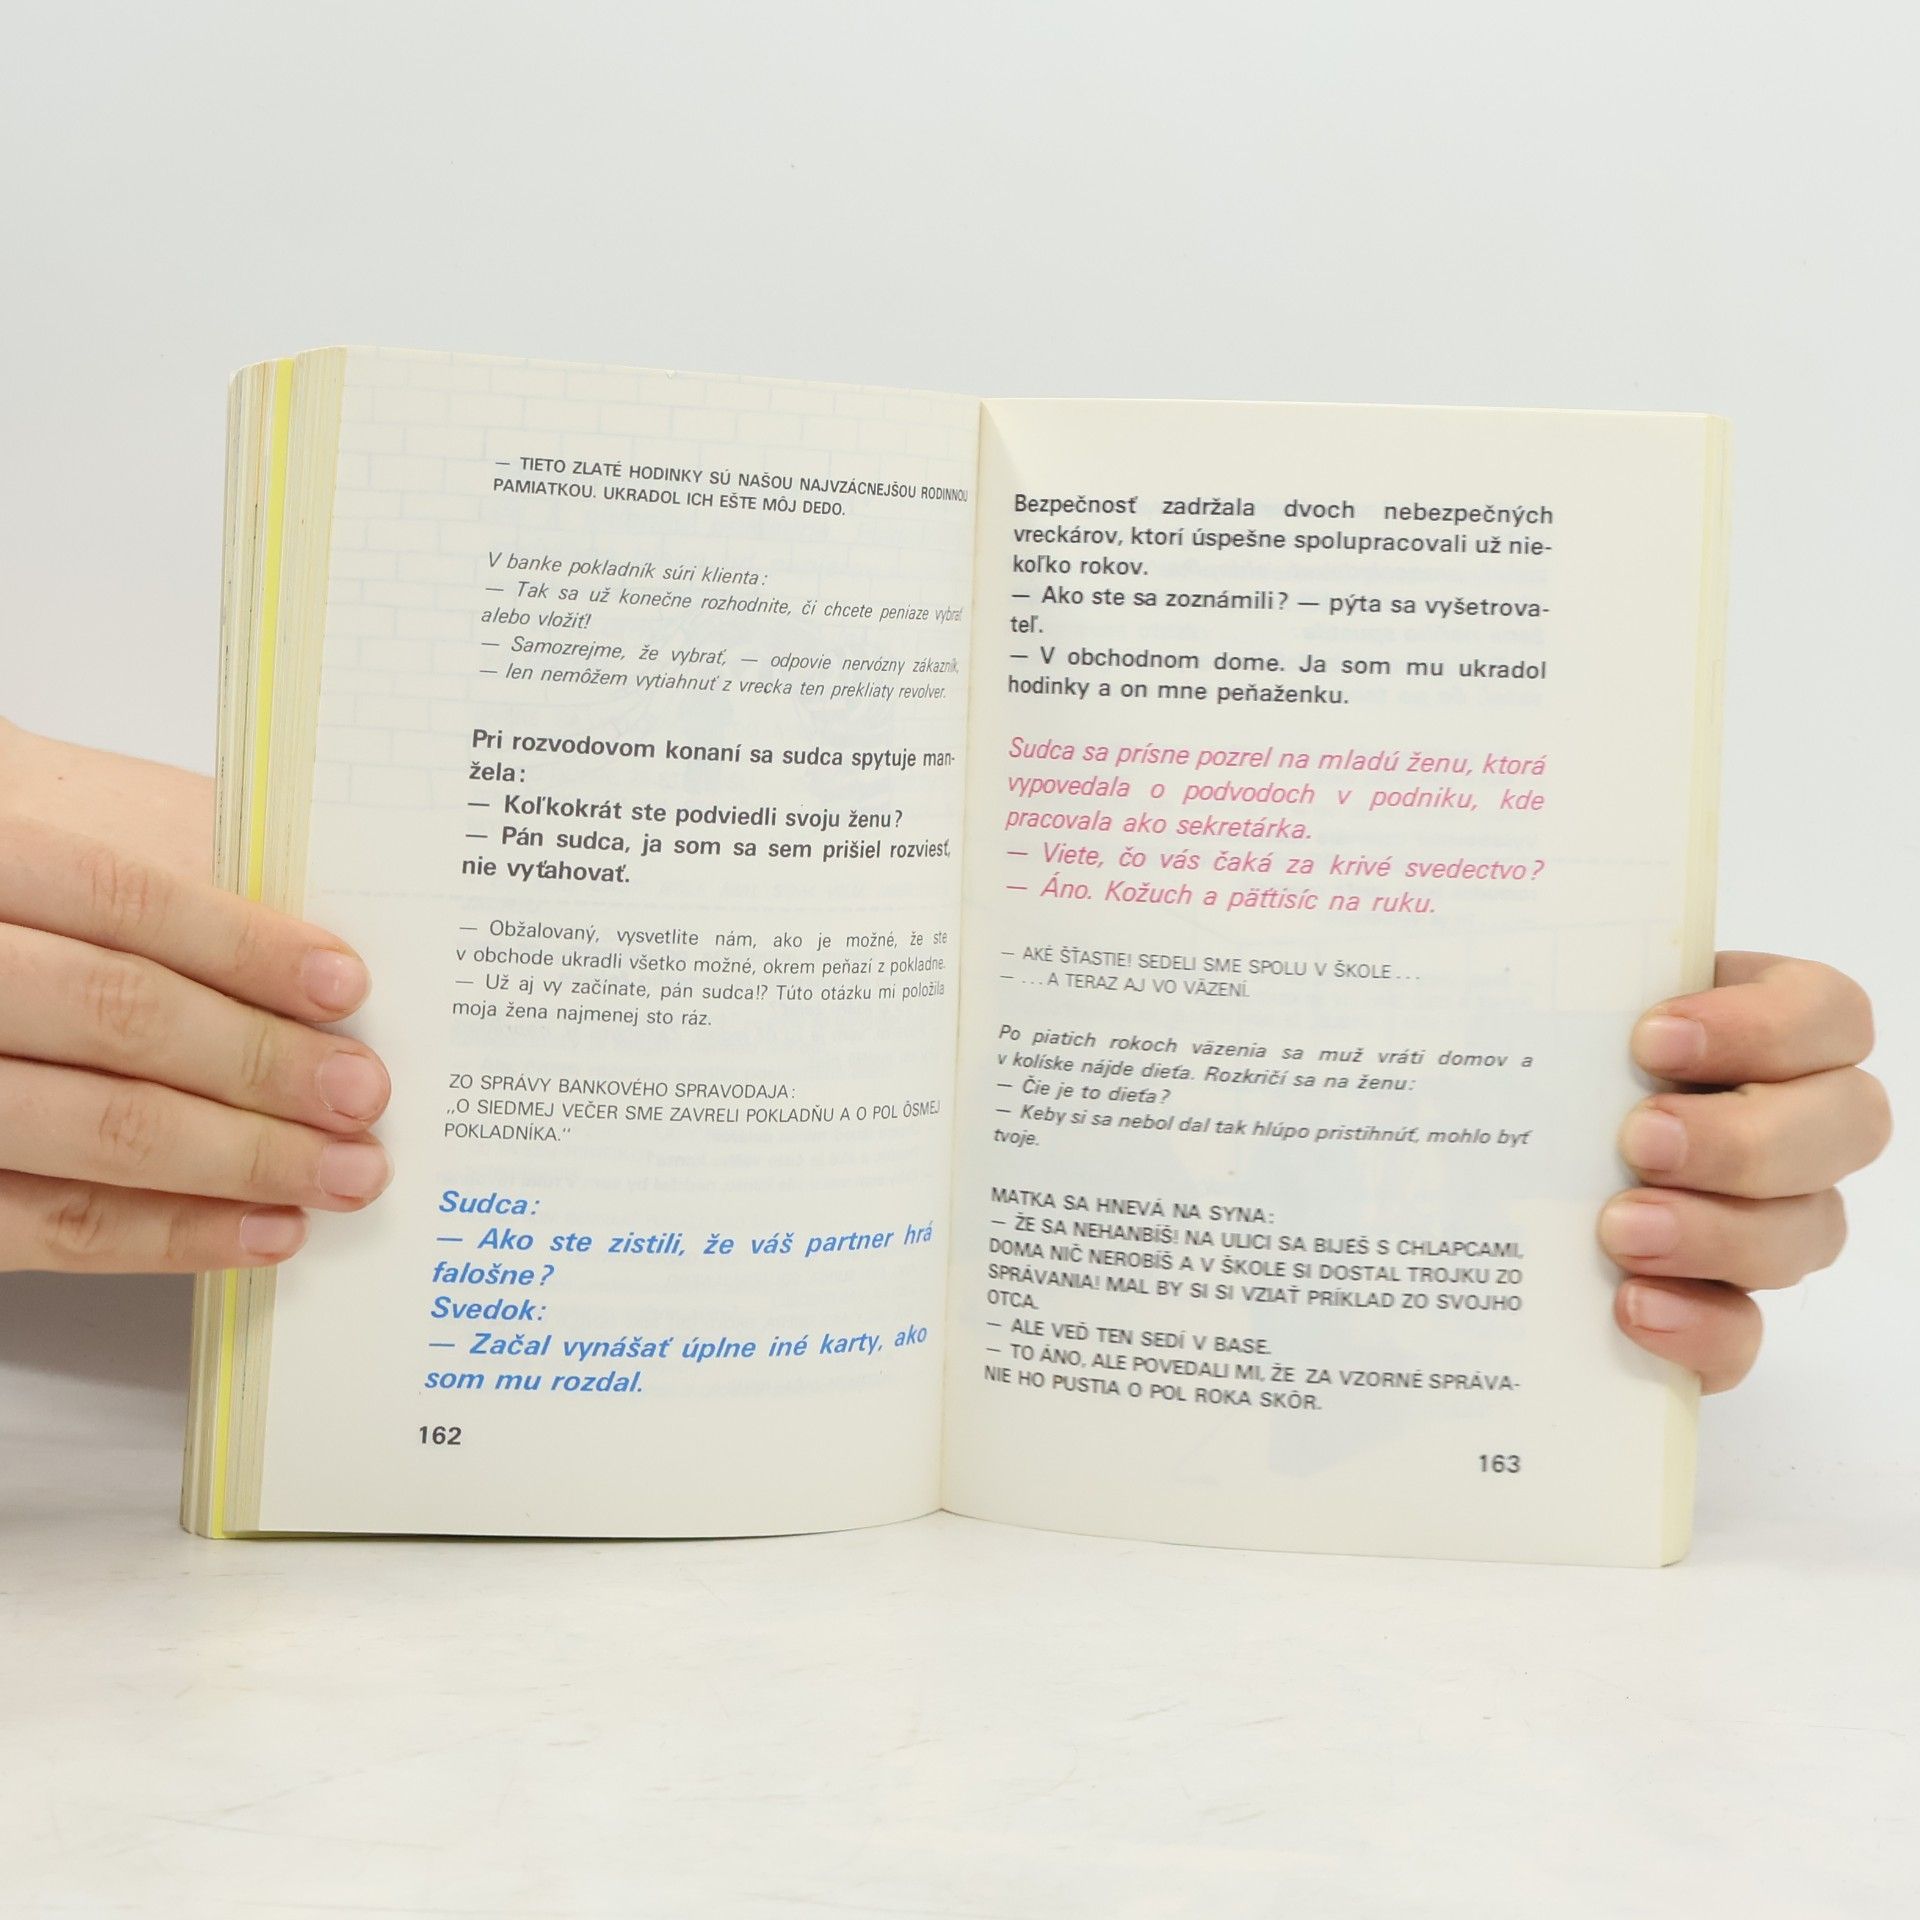 — TIETO ZLATÉ HODINKY SÚ NAŠOU NAJVZÁCNEJŠOU RODINNOU
PAMIATKOU. UKRADOL ICH EŠTE MÔJ DEDO.
V banke pokladník súri klienta:
— Tak sa už konečne rozhodnite, či chcete peniaze vybrať
alebo vložiť!
— Samozrejme, že vybrať, — odpovie nervózny zákazník,
— len nemôžem vytiahnuť z vrecka ten prekliaty revolver.
Pri rozvodovom konaní sa sudca spytuje man-
žela:
— Koľkokrát ste podviedli svoju ženu?
— Pán sudca, ja som sa sem prišiel rozviesť,
nie vyťahovať.
— Obžalovaný, vysvetlite nám, ako je možné, že ste
v obchode ukradli všetko možné, okrem peňazí z pokladne.
— Už aj vy začínate, pán sudca!? Túto otázku mi položila
moja žena najmenej sto ráz.
ZO SPRÁVY BANKOVÉHO SPRAVODAJA:
„O SIEDMEJ VEČER SME ZAVRELI POKLADŇU A O POL ÔSMEJ
POKLADNÍKA.“
Sudca:
— Ako ste zistili, že váš partner hrá
falošne?
Svedok:
— Začal vynášať úplne iné karty, ako
som mu rozdal.
162
Bezpečnosť zadržala dvoch nebezpečných
vreckárov, ktorí úspešne spolupracovali už nie-
koľko rokov.
— Ako ste sa zoznámili? — pýta sa vyšetrova-
teľ.
— V obchodnom dome. Ja som mu ukradol
hodinky a on mne peňaženku.
Sudca sa prísne pozrel na mladú ženu, ktorá
vypovedala o podvodoch v podniku, kde
pracovala ako sekretárka.
— Viete, čo vás čaká za krivé svedectvo?
— Áno. Kožuch a päťtisíc na ruku.
— AKÉ ŠŤASTIE! SEDELI SME SPOLU V ŠKOLE...
— ...A TERAZ AJ VO VÄZENÍ.
Po piatich rokoch väzenia sa muž vráti domov a
v kolíske nájde dieťa. Rozkričí sa na ženu:
— Čie je to dieťa?
— Keby si sa nebol dal tak hlúpo pristihnúť, mohlo byť
tvoje.
MATKA SA HNEVÁ NA SYNA:
— ŽE SA NEHANBÍŠ! NA ULICI SA BIJEŠ S CHLAPCAMI,
DOMA NIČ NEROBÍŠ A V ŠKOLE SI DOSTAL TROJKU ZO
SPRÁVANIA! MAL BY SI SI VZIAŤ PRÍKLAD ZO SVOJHO
OTCA.
— ALE VEĎ TEN SEDÍ V BASE.
— TO ÁNO, ALE POVEDALI MI, ŽE ZA VZORNÉ SPRÁVA-
NIE HO PUSTIA O POL ROKA SKÔR.
163